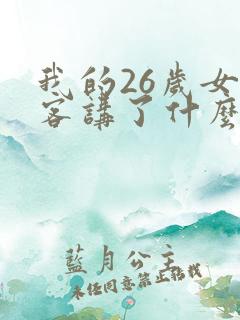 我的26歲女
客講了什麼
藍月公主
未經同意禁止轉載